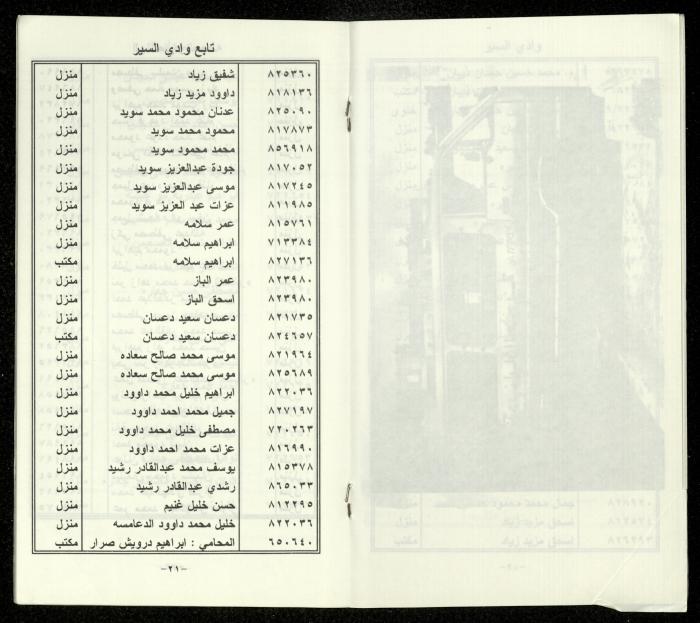 تابع وادي السير
٨٢٥٣٦٠ شفيق زياد منزل
٨١٨١٣٦ داوود مزيد زياد منزل
٨٢٥٠٩٠ عدنان محمود محمد سويد منزل
٨١٧٨٧٣ محمود محمد سويد منزل
٨٥٦٩١٨ محمد محمود سويد منزل
٨١٧٠٥٢ جودة عبدالعزيز سويد منزل
٨١٧٢٤٥ موسى عبدالعزيز سويد منزل
٨١١٩٨٥ عزات عبد العزيز سويد منزل
٨١٥٧٦١ عمر سلامه منزل
٧١٣٣٨٤ ابراهيم سلامه منزل
٨٢٧١٣٦ ابراهيم سلامه مكتب
٨٢٣٩٨٠ عمر الباز منزل
٨٢٣٩٨٠ اسحق الباز منزل
٨٢١٧٣٥ دعسان سعيد دعسان منزل
٨٢٤٦٥٧ دعسان سعيد دعسان مكتب
٨٢١٩٦٤ موسى محمد صالح سعاده منزل
٨٢٥٦٨٩ موسى محمد صالح سعاده منزل
٨٢٢٠٣٦ ابراهيم خليل محمد داوود منزل
٨٢٧١٩٧ جميل محمد احمد داوود منزل
٧٢٠٢٦٣ مصطفى خليل محمد داوود منزل
٨١٦٩٩٠ عزات محمد احمد داوود منزل
٨١٥٣٧٨ يوسف محمد عبدالقادر رشيد منزل
٨٦٥٠٣٣ رشدي عبدالقادر رشيد منزل
٨١٢٢٩٥ حسن خليل غنيم منزل
٨٢٢٠٣٦ خليل محمد داوود الدعامسه منزل
٦٥٠٦٤٠ المحامي : ابراهيم درويش صرار مكتب
-٢١-